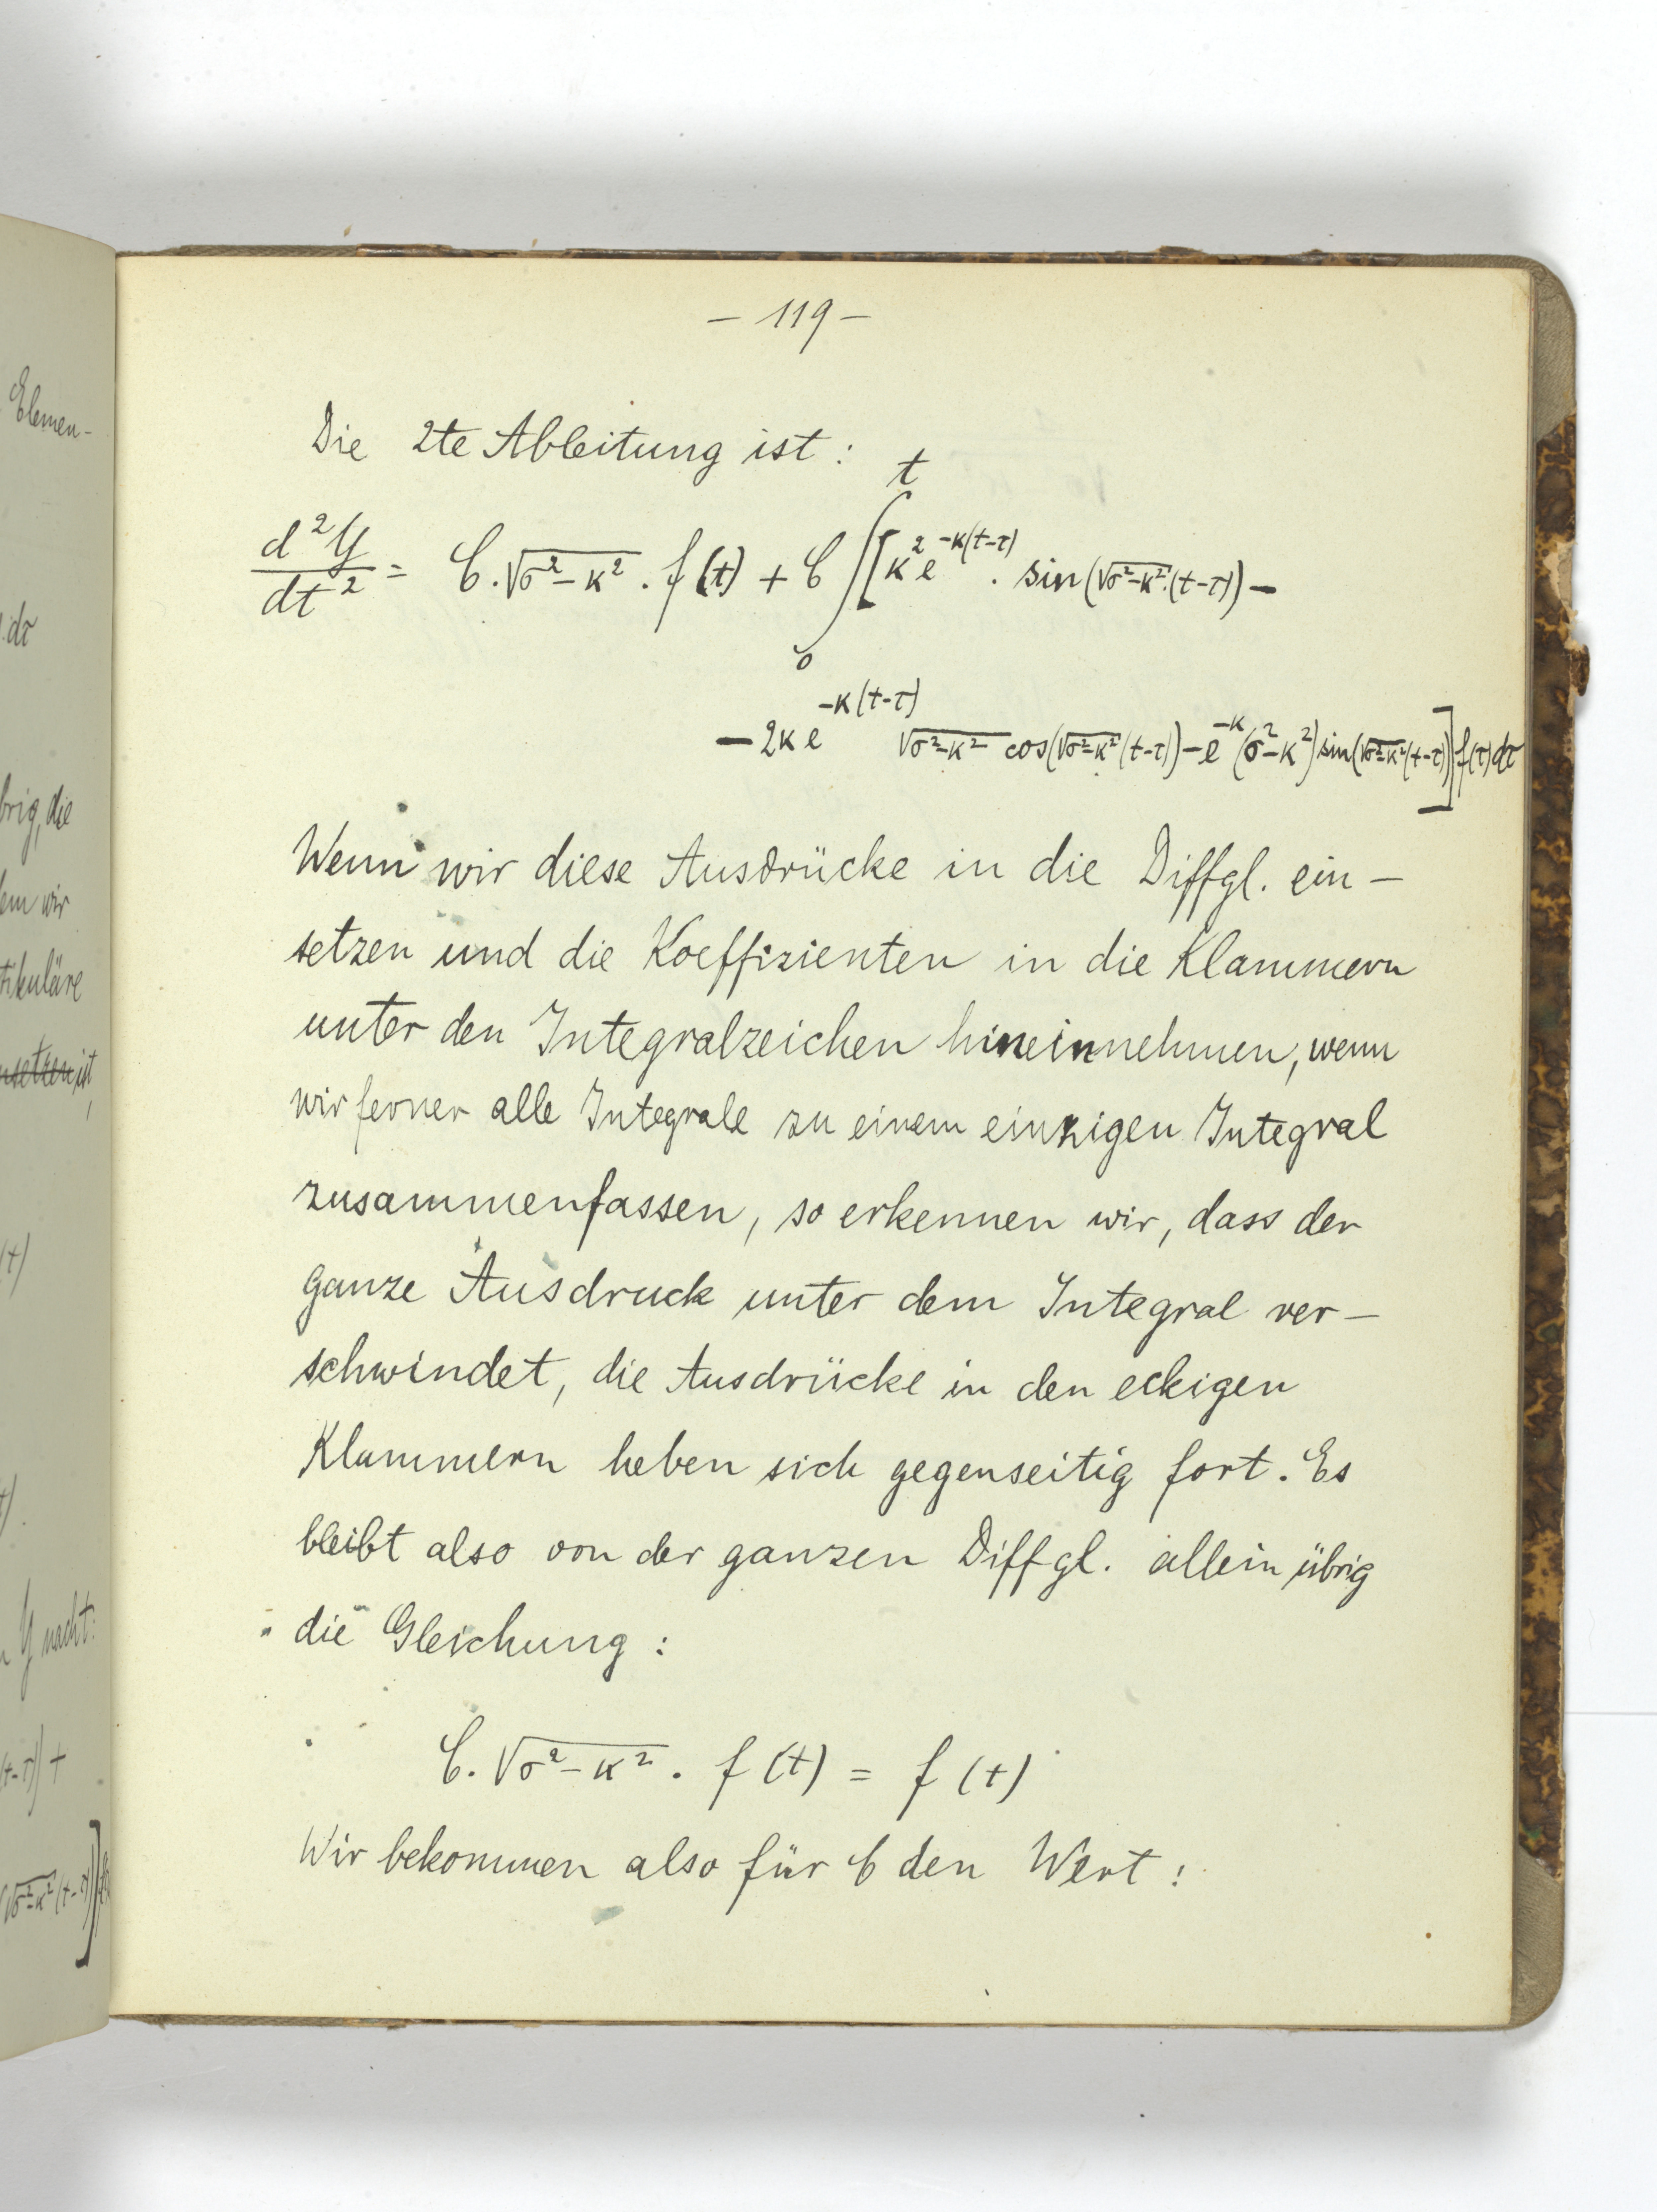 – 119 –
Die 2te Ableitung ist :
d²y/dt² = C·√σ²–κ² · f(t) + C ∫₀ᵗ [κ² e^–κ(t–τ) · sin(√σ²–κ²·(t–τ)) –
– 2κ e^–κ(t–τ) √σ²–κ² cos(√σ²–κ²(t–τ)) – e^–κ (σ²–κ²) sin(√σ²–κ²(t–τ))] f(τ) dτ
Wenn wir diese Ausdrücke in die Diffgl. ein –
setzen und die Koeffizienten in die Klammern
unter den Integralzeichen hineinnehmen, wenn
wir ferner alle Integrale zu einem einzigen Integral
zusammenfassen, so erkennen wir, dass der
ganze Ausdruck unter dem Integral ver –
schwindet, die Ausdrücke in den eckigen
Klammern heben sich gegenseitig fort. Es
bleibt also von der ganzen Diffgl. allein übrig
die Gleichung :
C·√σ²–κ² · f(t) = f(t)
Wir bekommen also für C den Wert :
Elemen –
dτ
brig, die
em wir
tikuläre
nsetzen ist,
(t)
y macht:
(t–τ)) +
√σ²–κ²(t–τ))]